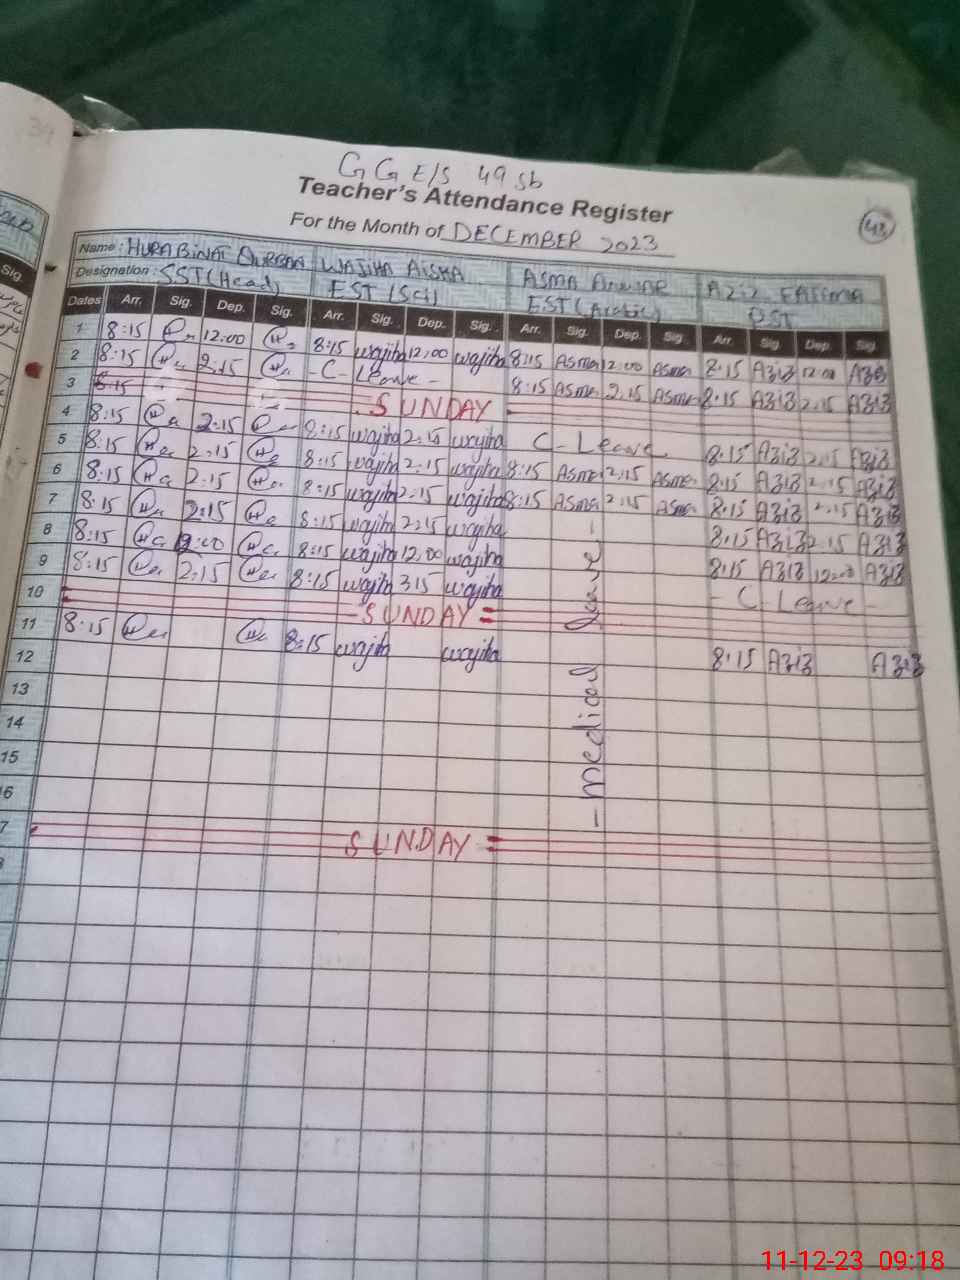 39
G G E/S 49 Sb
Teacher's Attendance Register
43
For the Month of DECEMBER 2023
Name: HURA BINAT WAJIHA AISHA ASMA Anwar AZIZ FATIMA
Designation: SST (Head) EST (Sci) EST (Arabic) PST
Sig.
Dates Arr. Sig. Dep. Sig. Arr. Sig. Dep. Sig. Arr. Sig. Dep. Sig. Arr. Sig. Dep. Sig.
1 8:15 12:00 8:15 wajiha 12,00 wajiha 8:15 Asma 12:00 Asma 8:15 Aziz 12:00 Aziz
2 8:15 2:15 - C - Leave - 8:15 Asma 2:15 Asma 8:15 Aziz 2:15 Aziz
3 8:15 SUNDAY
4 8:15 2:15 8:15 wajiha 2:15 wajiha C - Leave 8:15 Aziz 2:15 Aziz
5 8:15 2:15 8:15 wajiha 2:15 wajiha 8:15 Asma 2:15 Asma 8:15 Aziz 2:15 Aziz
6 8:15 2:15 8:15 wajiha 2:15 wajiha 8:15 Asma 2:15 Asma 8:15 Aziz 2:15 Aziz
7 8:15 2:15 8:15 wajiha 2:15 wajiha 8:15 Aziz 2:15 Aziz
8 8:15 8:15 wajiha 12,00 wajiha 8:15 Aziz 12:00 Aziz
9 8:15 2:15 8:15 wajiha 315 wajiha - C - Leave -
10 SUNDAY =
11 8:15 8:15 wajiha wajiha 8:15 Aziz Aziz
- medical leave -
12
13
14
15
6
7 SUNDAY =
11-12-23 09:18